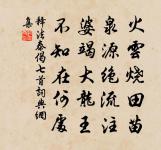 火雲燒田苗
泉源絕流注
婆竭大龍王
不知在何處
釋法泰偈七首詞典網
集